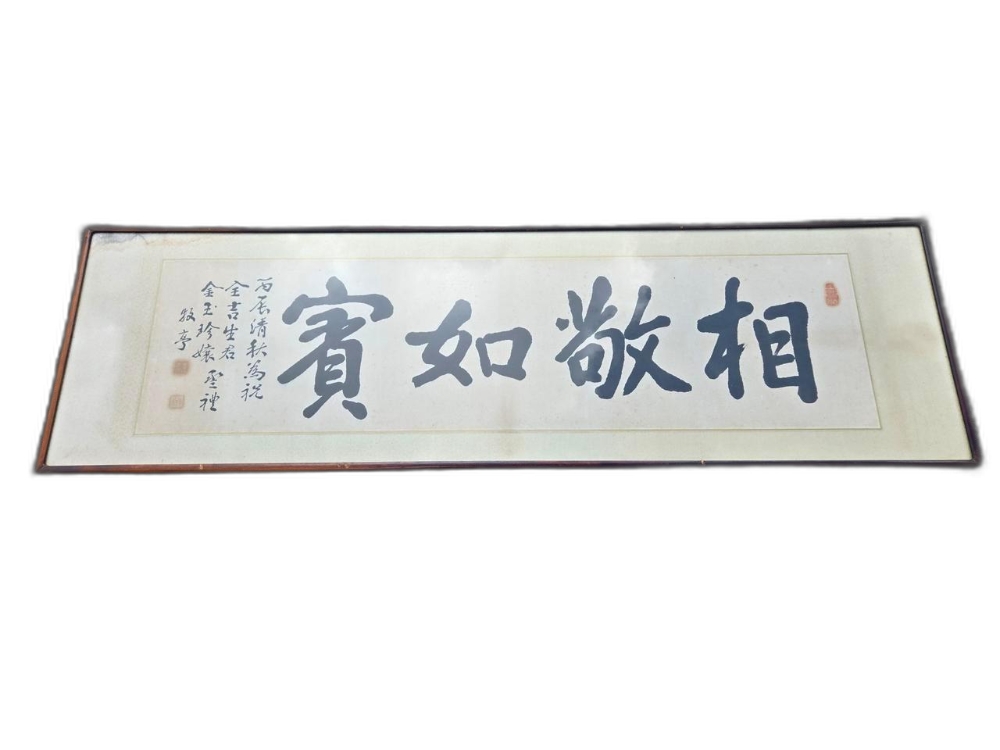 相敬如賓
丙辰清秋爲祝
全吉生君
金玉珍孃 聖禮
牧亭